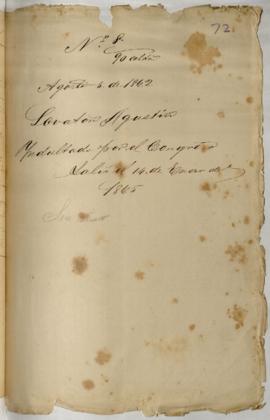 72
Nº 8.
Agosto 5 de 1862
Lovaton Agustin
Indultado por el Congreso
Salió el 14 de Enero de
1865